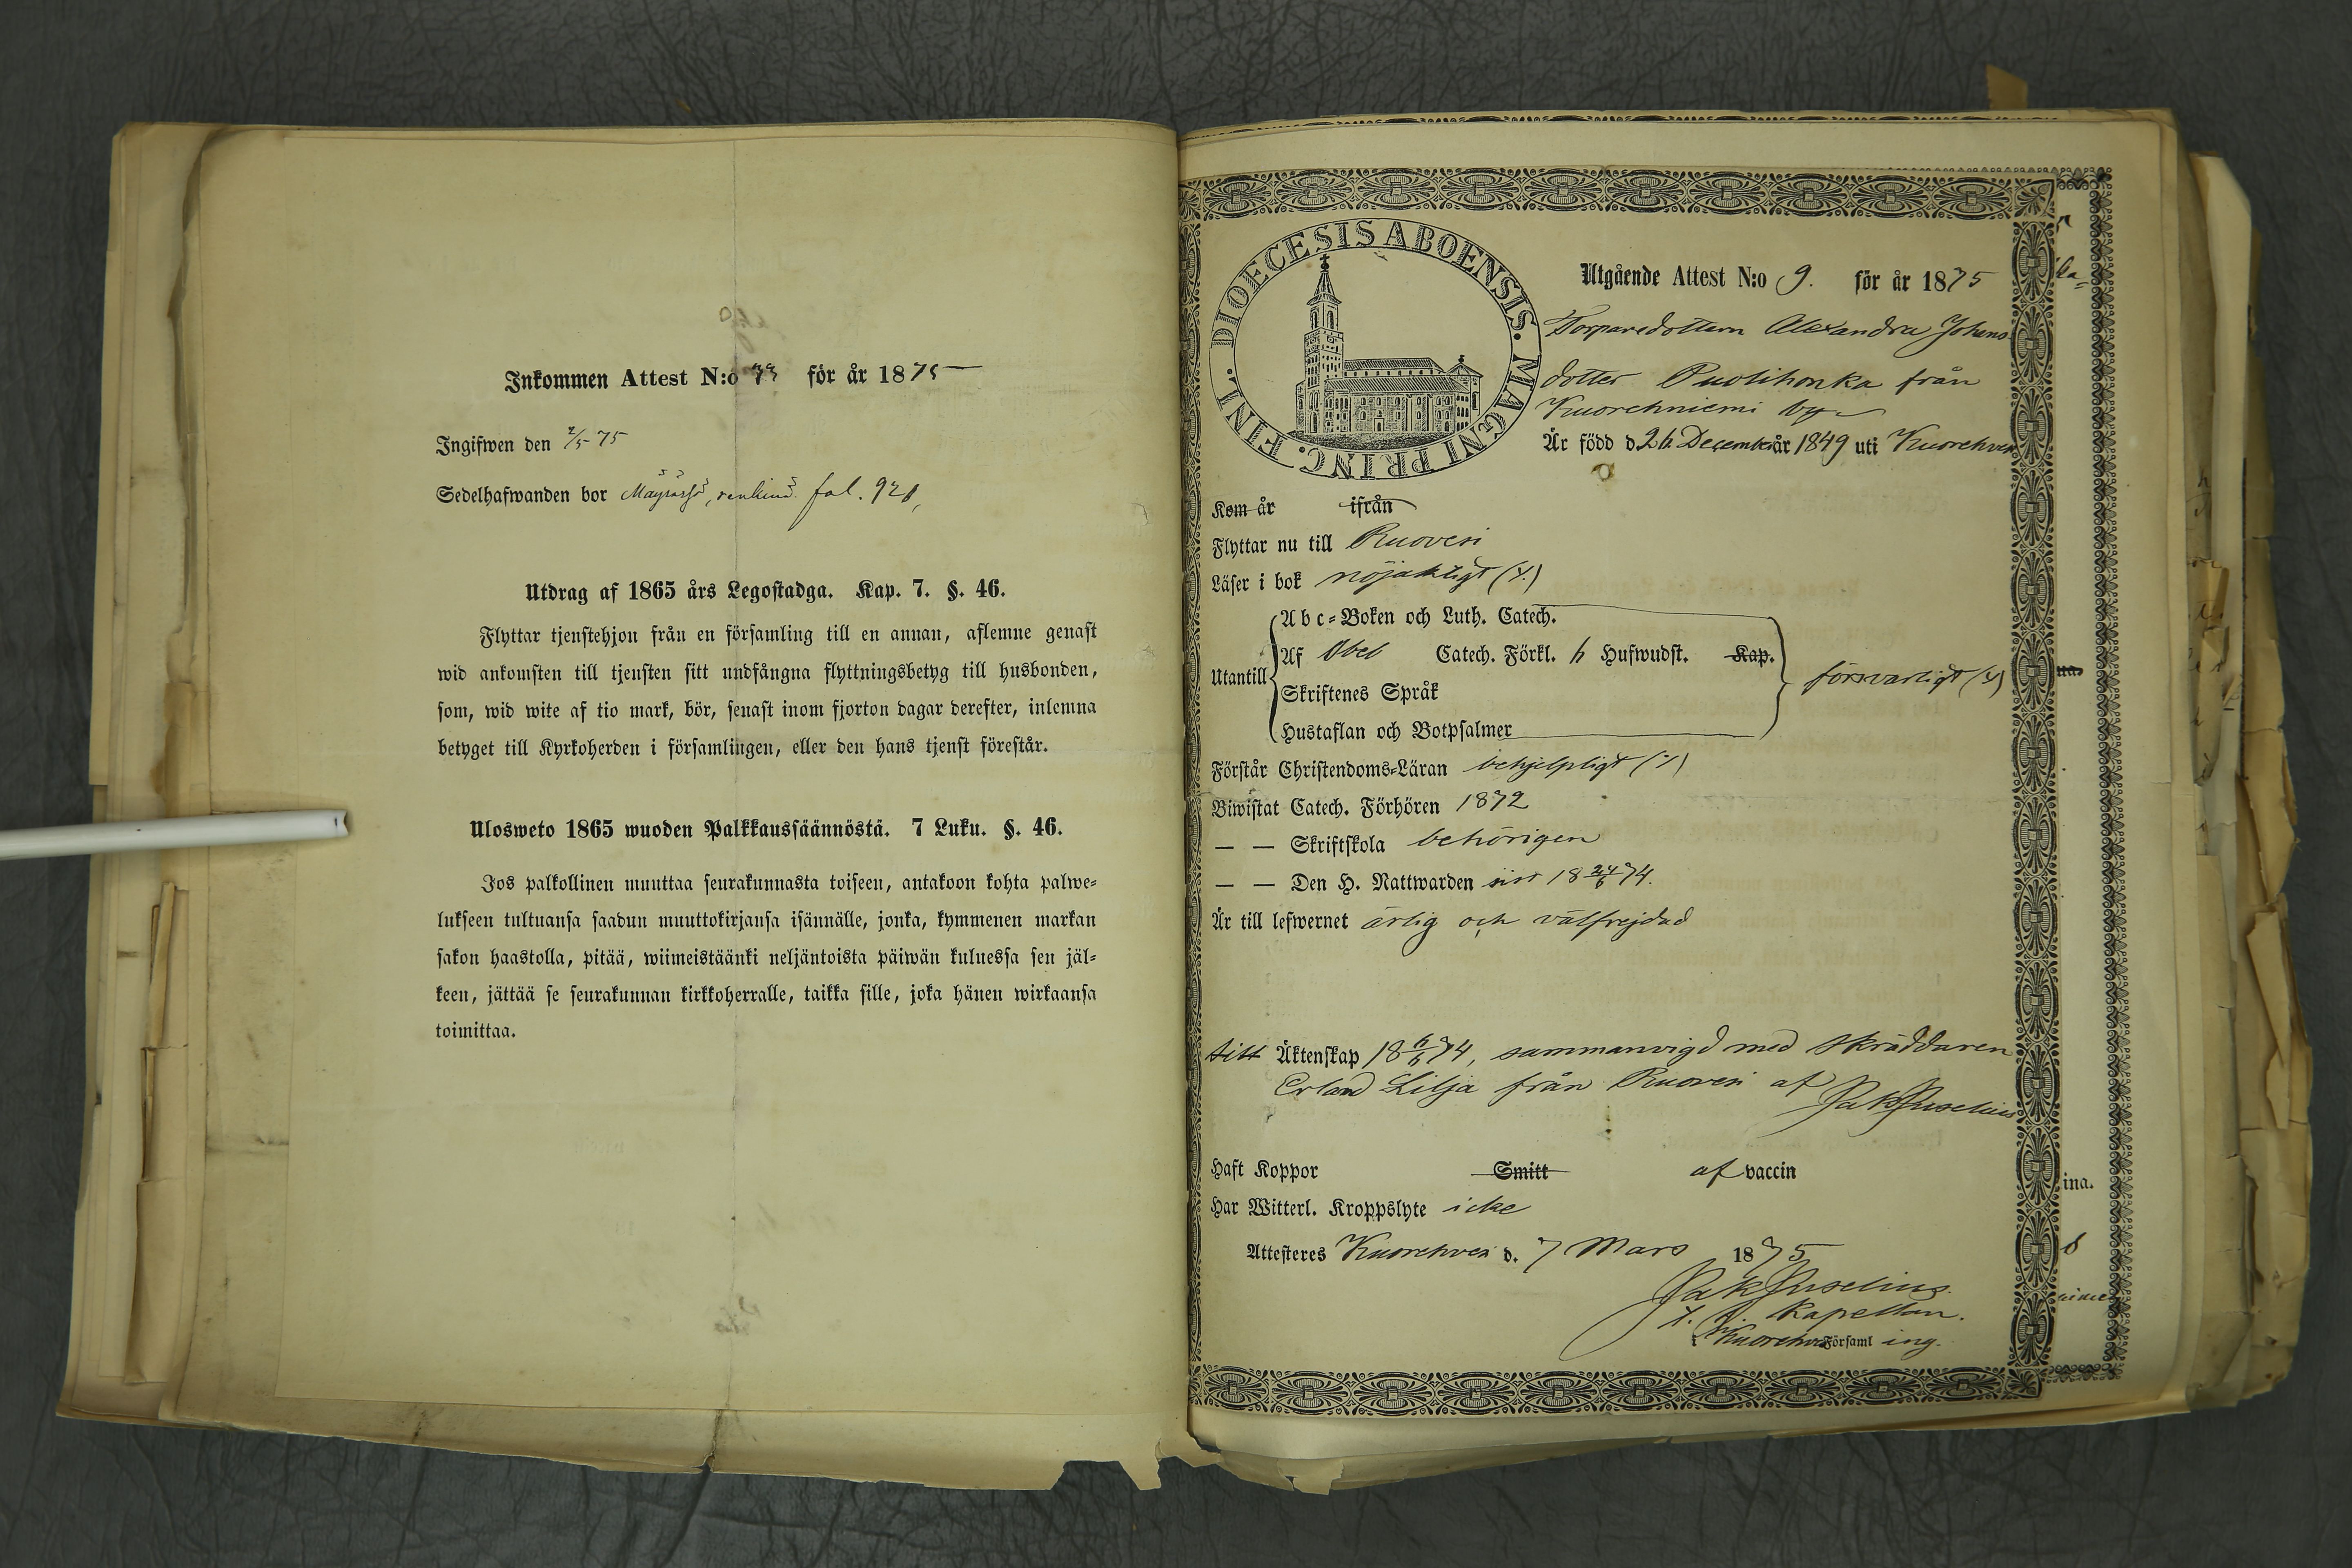 Inkommen Attest N:o 73 för år 1875
Ingifwen den 2/5 75
Sedelhafwanden bor fol. 921,
Utdrag af 1865 års Legostadga. Kap. 7. §. 46.
Flyttar tjenstehjon från en församling till en annan, aflemne genast
wid ankomsten till tjensten sitt undfångna flyttningsbetyg till husbonden,
som, wid wite af tio mark, bör, senast inom fjorton dagar derefter, inlemna
betyget till Kyrkoherden i församlingen, eller den hans tjenst förestår.
Ulosweto 1865 wuoden Palkkaussäännöstä. 7 Luku. §. 46.
Jos palkollinen muuttaa seurakunnasta toiseen, antakoon kohta palwe-
lukseen tultuansa saadun muuttokirjansa isännälle, jonka, kymmenen markan
sakon haastolla, pitää, wiimeistäänki neljäntoista päiwän kuluessa sen jäl-
keen, jättää se seurakunnan kirkkoherralle, taikka sille, joka hänen wirkaansa
toimittaa.
DIOECESIS ABOENSIS. MAGNI PRINC. FINL.
Utgående Attest N:o 9. för år 1875
Torparedottern Alexandra Johans
dotter Puolihonka från
Kuorehniemi by
Är född d. 26 December år 1849 uti Kuorehvesi
Kom år ifrån
Flyttar nu till Ruovesi
Läser i bok nöjaktigt
Utantill
Abc-Boken och Luth. Catech.
Af Catech. Förkl. 6 Hufwudst. Kap.
Skriftenes Språk
Hustaflan och Botpsalmer
försvarligt
Förstår Christendoms-Läran behjelpligt
Biwistat Catech. Förhören 1872
— — Skriftskola behörigen
— — Den H. Nattwarden sist 18 24/6 74.
Är till lefwernet ärlig och välfrejdad
till Äktenskap 18 6/6 74, sammanvigd med skräddaren
Erland Lilja från Ruovesi af
Jak Juselius
Haft Koppor Smitt af vaccin
Har Witterl. Kroppslyte icke
Attesteres Kuorehvesi d. 7 Mars 1875
Jak Juselius.
Kapellan.
i Kuorehvesi Församling.
ina.